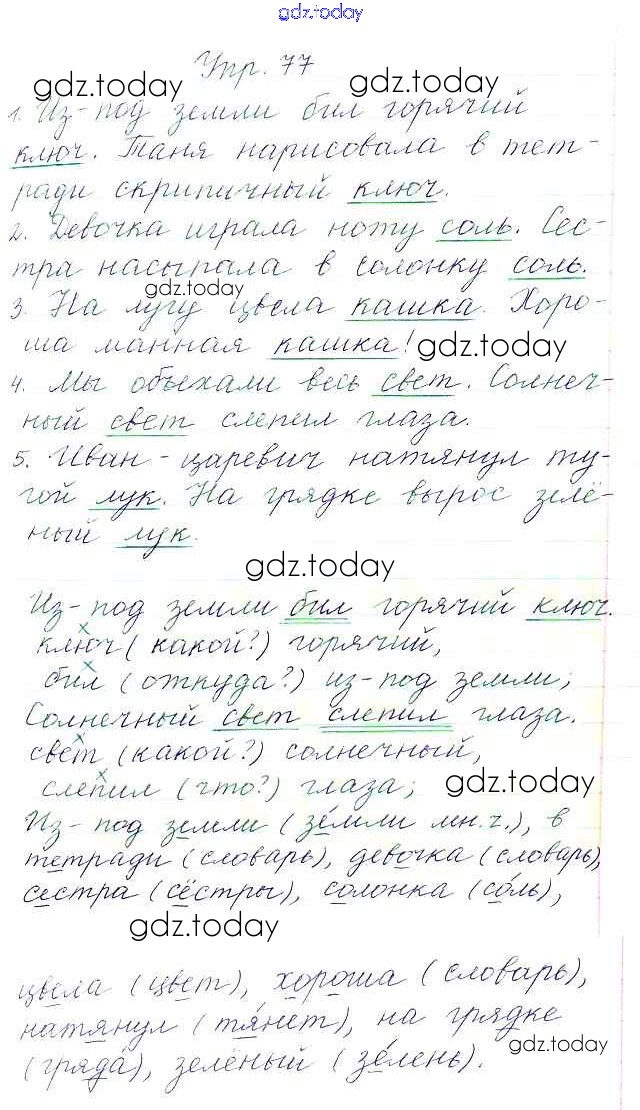 gdz.today
Упр. 77
gdz.today gdz.today
1. Из-под земли бил горячий
ключ. Таня нарисовала в тет-
ради скрипичный ключ.
2. Девочка играла ноту соль. Сес-
тра насыпала в солонку соль.
gdz.today
3. На лугу цвела кашка. Хоро-
ша манная кашка!
gdz.today
4. Мы объехали весь свет. Солнеч-
ный свет слепил глаза.
5. Иван-царевич натянул ту-
гой лук. На грядке вырос зелё-
ный лук.
gdz.today
Из-под земли бил горячий ключ.
ключ (какой?) горячий,
бил (откуда?) из-под земли;
Солнечный свет слепил глаза.
свет (какой?) солнечный,
слепил (что?) глаза;
gdz.today
Из-под земли (зéмли мн.ч.), в
тетради (словарь), девочка (словарь),
сестра (сёстры), солонка (сóль),
gdz.today
цвела (цвет), хороша (словарь),
натянул (тя́нет), на грядке
(грядá), зелёный (зéлень).
gdz.today